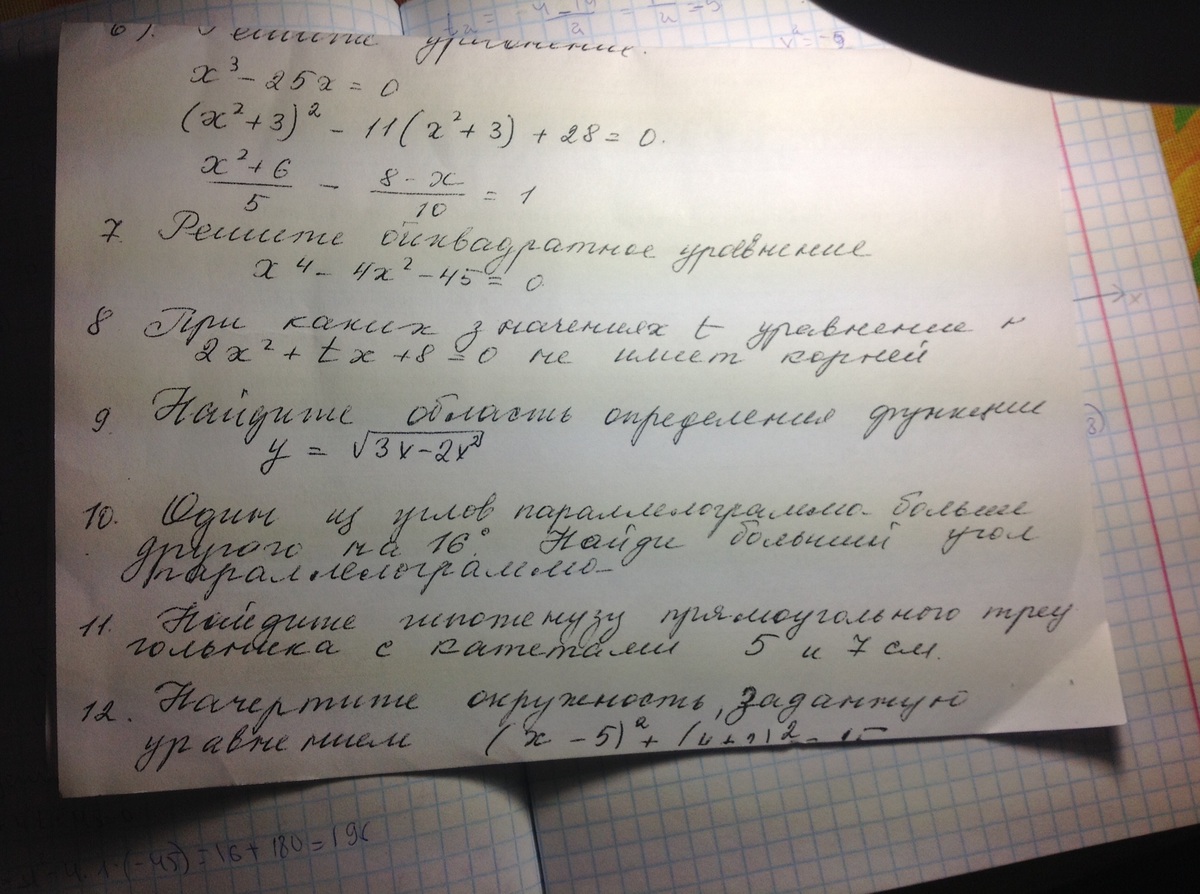 6). Решите уравнение.
x³ - 25x = 0
(x² + 3)² - 11(x² + 3) + 28 = 0.
x² + 6 / 5 - 8 - x / 10 = 1
7. Решите биквадратное уравнение
x⁴ - 4x² - 45 = 0
8 При каких значениях t уравнение
2x² + tx + 8 = 0 не имеет корней
9. Найдите область определения функции
y = √3x - 2x²
10. Один из углов параллелограмма больше
другого на 16°. Найди больший угол
параллелограмма
11. Найдите гипотенузу прямоугольного треу
гольника с катетами 5 и 7 см.
12. Начертите окружность, заданную
уравнением (x - 5)² +
· 1 · (-45) = 16 + 180 = 196